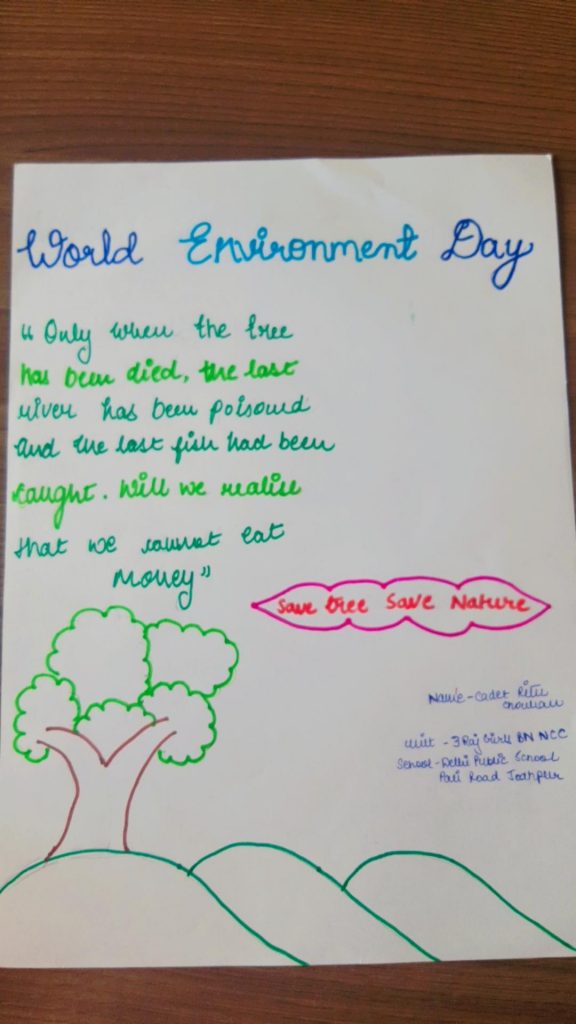 World Environment Day
"Only when the tree
has been died, the last
river has been poisoned
and the last fish had been
caught. Will we realise
that we cannot eat
Money"
Save tree Save Nature
Name-Cadet Ritu
Chouhan
unit - 3 Raj Girls BN NCC
School-Delhi Public School
Pali Road Jodhpur